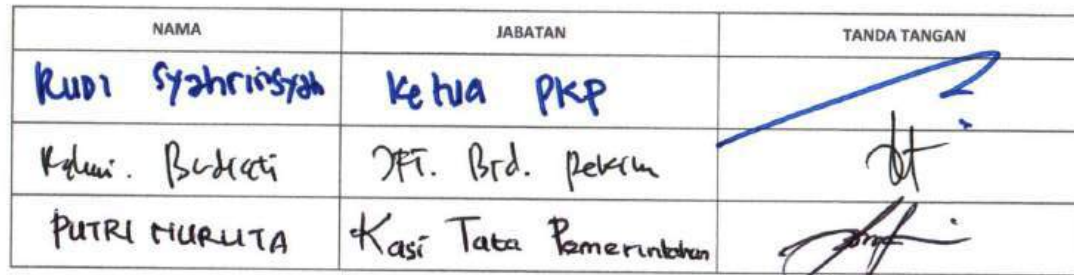 NAMA JABATAN TANDA TANGAN
RUDI Syahrinsyah Ketua PKP
JFT. Brd. Perkim
PUTRI NURLITA Kasi Tata Pemerintahan